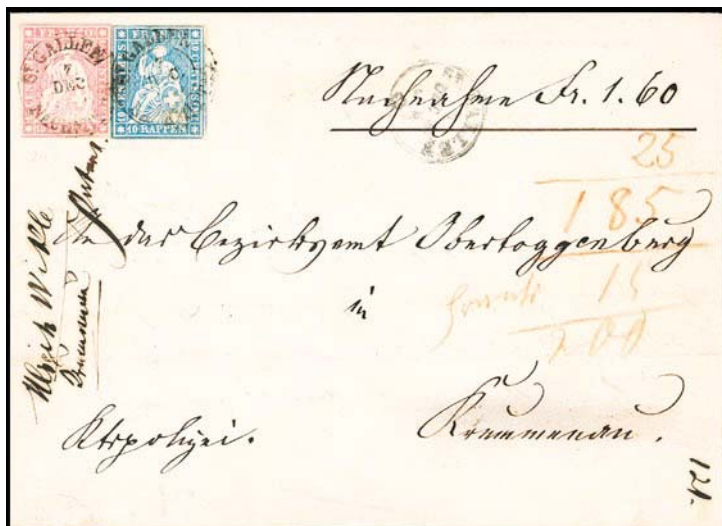 ST. GALLEN
7
DEC
NACHM
FRANCO
10 RAPPEN
Nachnahme Fr. 1.60
25
185
An das Bezirksamt Obertoggenburg
in
franko 15
200
Krummenau.
Ktspolizei.
Ulrich
Krummenau
121.